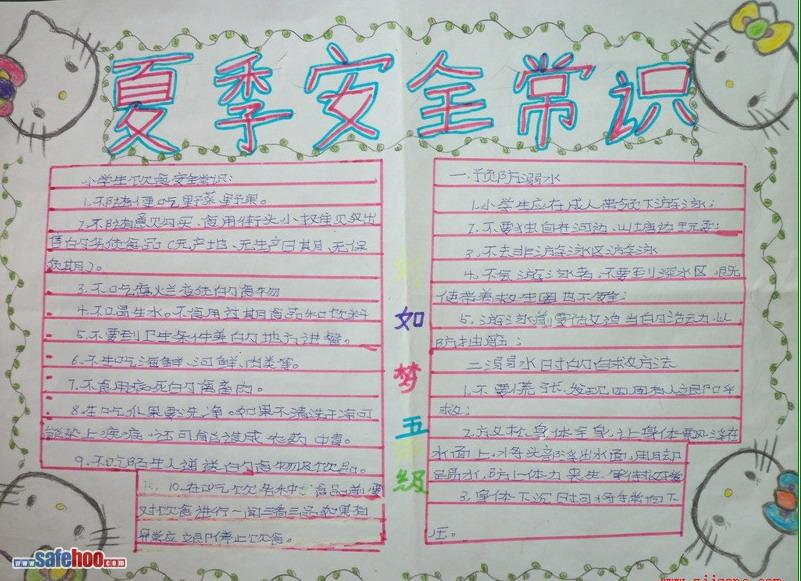 夏季安全常识
小学生饮食安全常识:
1.不随便吃野菜、野果。
2.不随意购买、食用街头小摊贩出
售的劣质食品(无产地、无生产日期、无保
质期)。
3.不吃腐烂变质的食物
4.不喝生水。不食用过期食品和饮料
5.不要到卫生条件差的地方进餐。
6.不生吃海鲜、河鲜、肉类等。
7.不食用病死的禽畜肉。
8.生吃水果要洗净。如果不清洗干净可
能染上疾病,还可能造成农药中毒。
9.不吃陌生人递送的食物及饮品。
10.在吃饮
对饮食进行一闻二看三品如果有
异常应立即停止饮食。
刘如梦五级
一.预防溺水
1.小学生应在成人带领下游泳;
2.不要独自在河边、山塘边玩耍;
3.不去非游泳区游泳
4.不会游泳者,不要到深水区,既
使带着救生圈也不安全;
5.游泳前要做适当的活动,以
防抽筋;
二.溺水时的自救方法
1.不要慌张,发现周围有人立即呼
救;
2.放松身体全身,让身体飘浮在
水面上,将头部浮出水面,用脚
踢水,防止体力丧失,等待救援
3.身体下沉时可将手掌向下
压。
www.safehoo.com